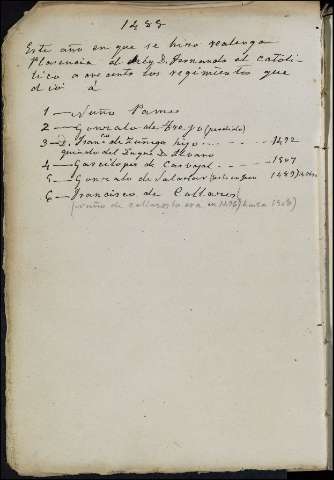 1488
Este año en que se hizo realenga
Plasencia el Rey D. Fernando el Catoli-
co aumento los regimientos que
dió á
1 — Nuño Pamo
2 — Gonzalo de Trejo (perdido)
3 — D. Franco de Zuñiga hijo ... 1492
del Duque D. Alvaro
4 — Garcilopez de Carvajal ... 1507
5 — Gonzalo de 1489
6 — Francisco de Collazos
(Nuño de collazos lo era en 1496) hasta 1508)